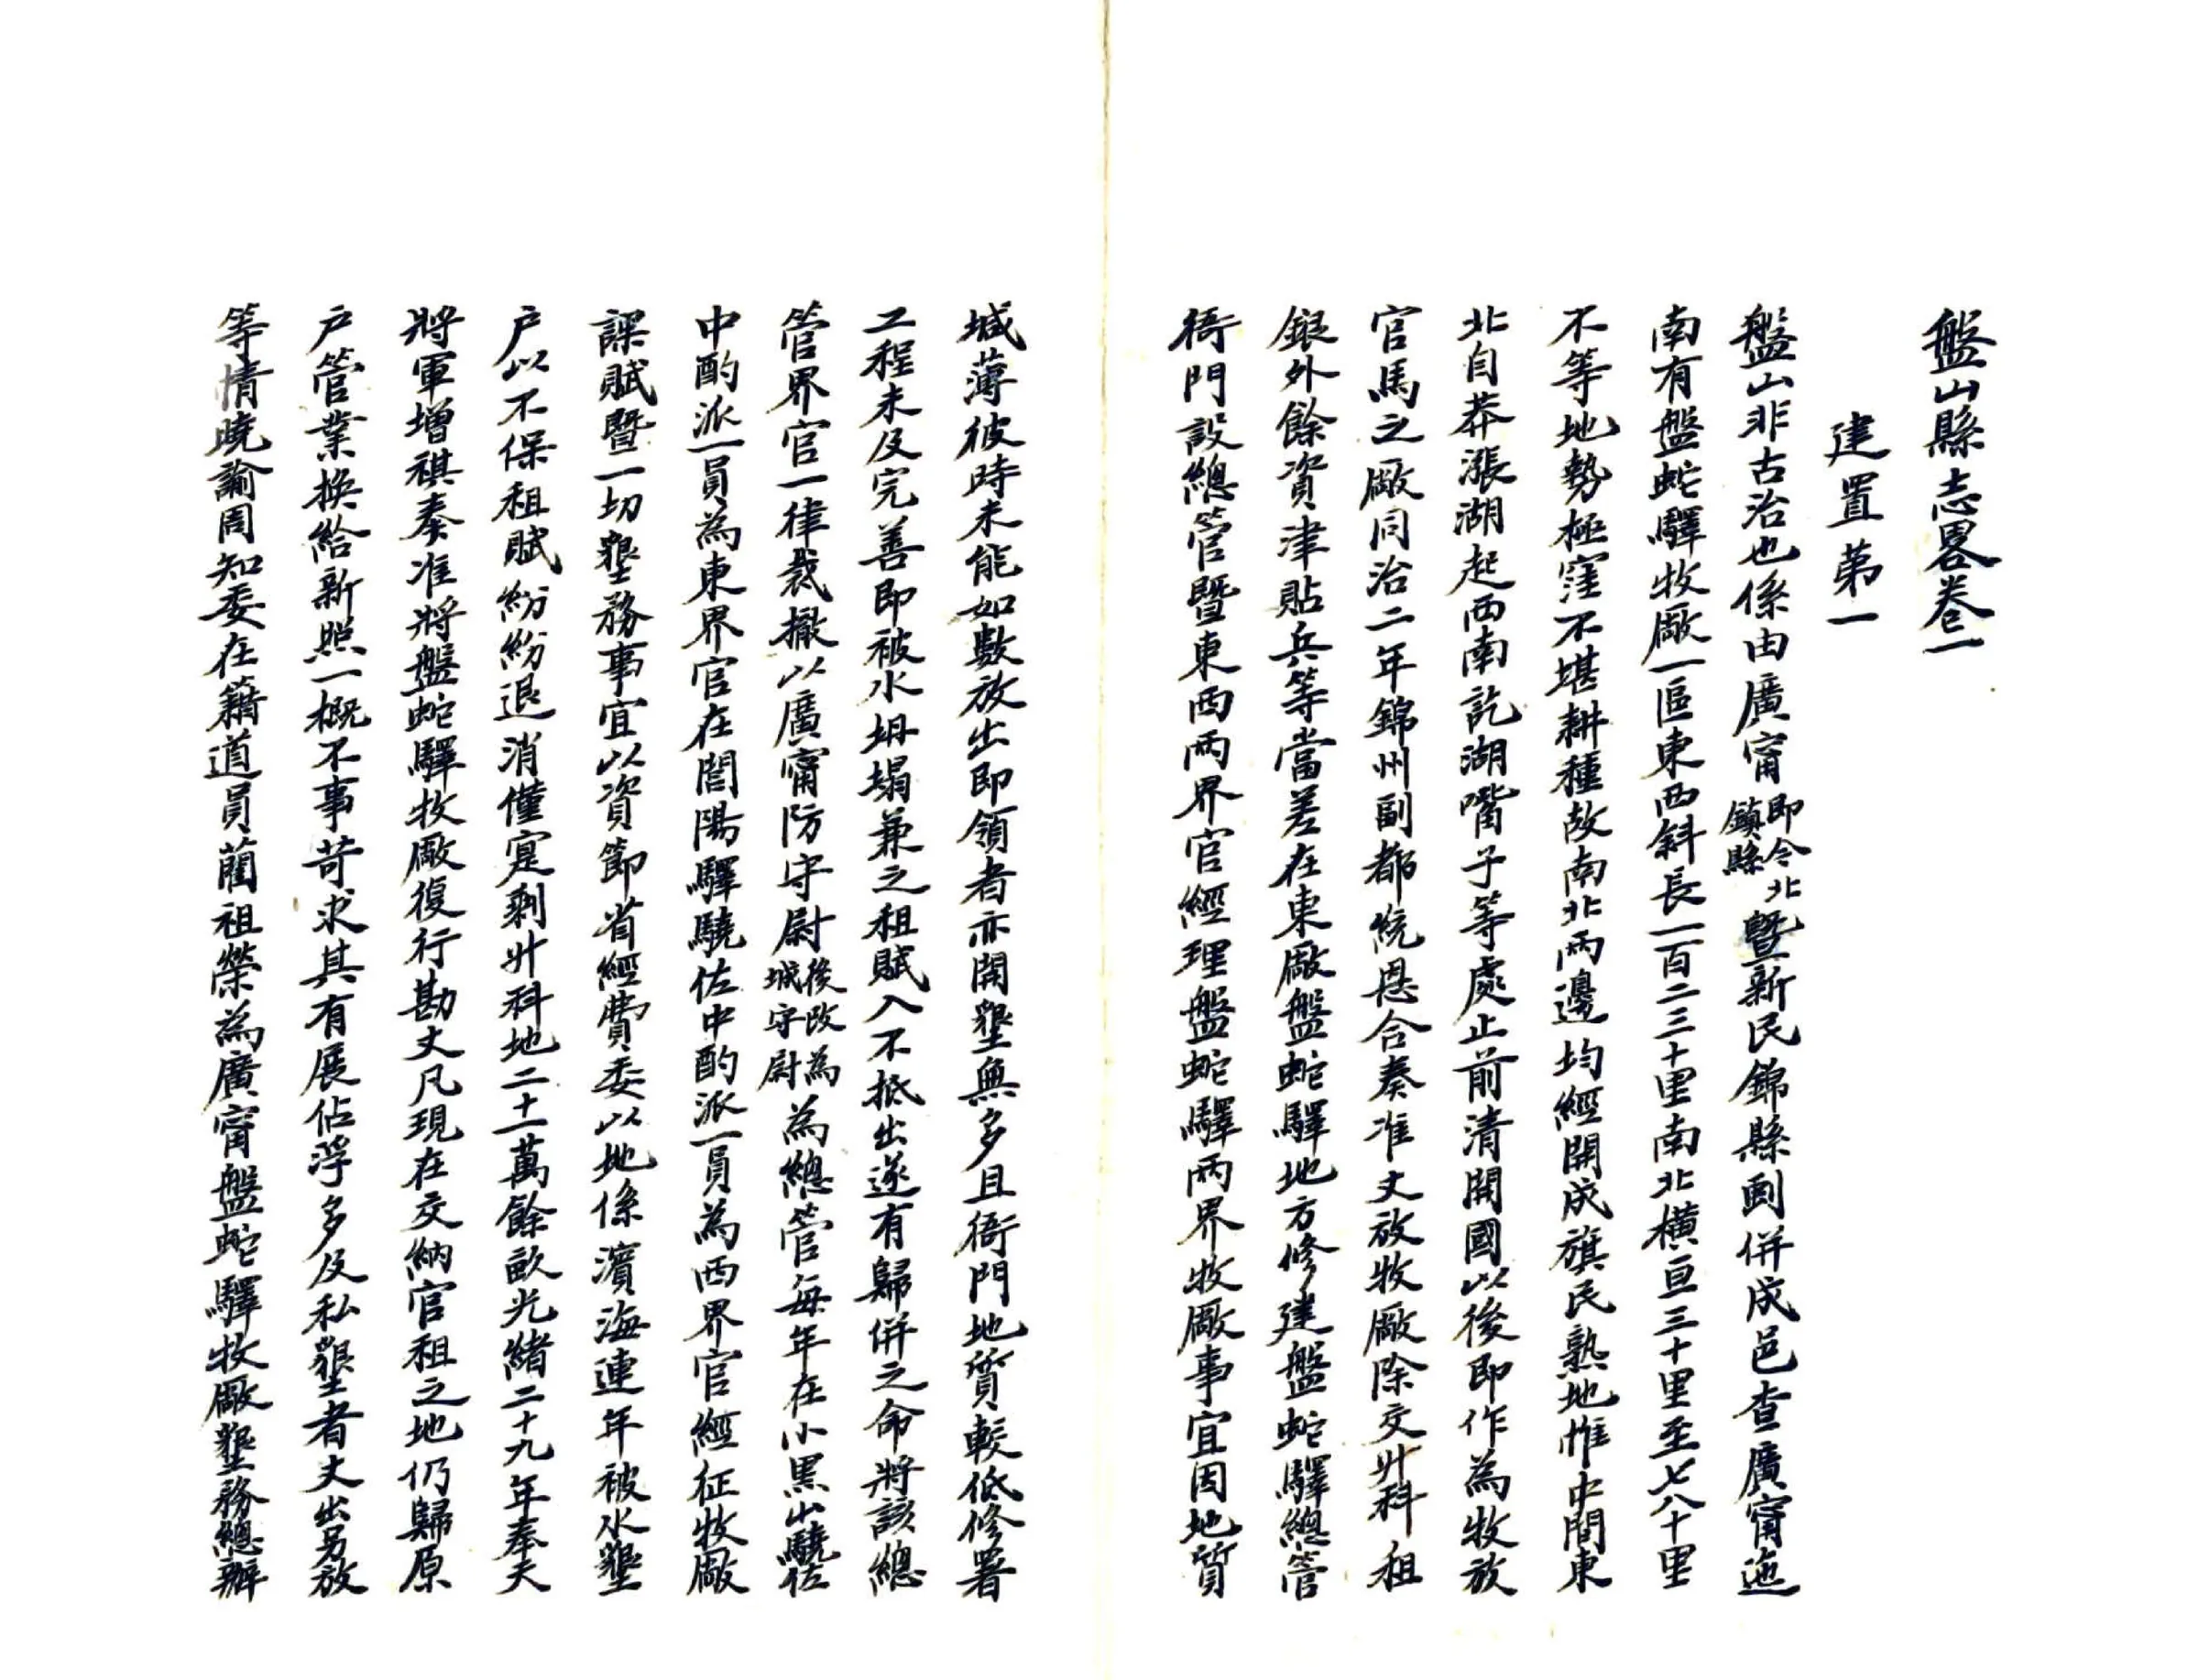 盤山縣志畧卷一
建置第一
盤山非古治也係由廣甯即今北鎮縣暨新民錦縣劃併成邑查廣甯迤
南有盤蛇驛牧廠一區東西斜長一百二三十里南北橫亘三十里至七八十里
不等地勢極窪不堪耕種故南北兩邊均經開成旗民熟地惟中間東
北自莽漲湖起西南訖湖嘴子等處止前清開國以後即作為牧放
官馬之廠同治二年錦州副都統恩合奏准丈放牧廠除交升科租
銀外餘資津貼兵等當差在東廠盤蛇驛地方修建盤蛇驛總管
衙門設總管暨東西兩界官經理盤蛇驛兩界牧廠事宜因地質
堿薄彼時未能如數放出即領者亦開墾無多且衙門地質較低修署
工程未及完善即被水坍塌兼之租賦入不抵出遂有歸併之命將該總
管界官一律裁撤以廣甯防守尉後改為城守尉為總管每年在小黑山驍佐
中酌派一員為東界官在閭陽驛驍佐中酌派一員為西界官經征牧廠
課賦暨一切墾務事宜以資節省經費委以地係濱海連年被水墾
戶以不保租賦紛紛退消僅寔剩升科地二十一萬餘畝光緒二十九年奉天
將軍增祺奏准將盤蛇驛牧廠復行勘丈凡現在交納官租之地仍歸原
戶管業換給新照一概不事苛求其有展佔浮多及私墾者丈出另放
等情曉諭周知委在籍道員藺祖榮為廣甯盤蛇驛牧廠墾務總辦